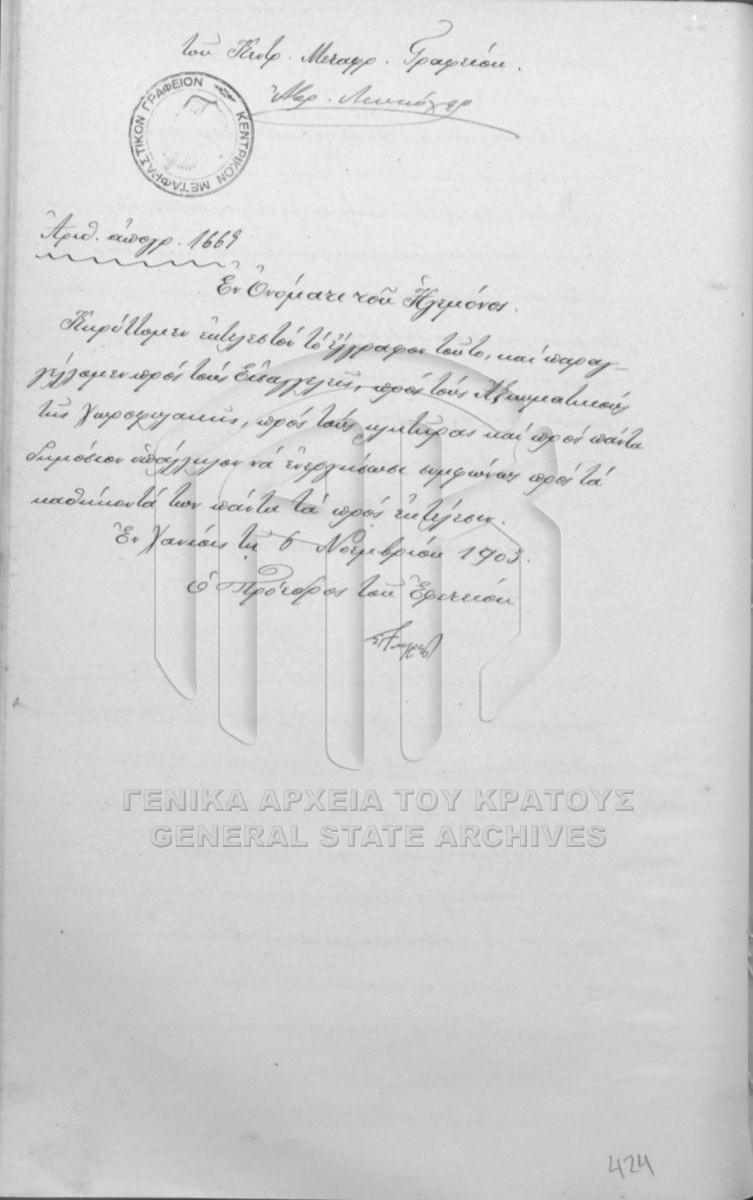 τοῦ Κεντρ. Μεταφρ. Γραφείου.
ΚΕΝΤΡΙΚΟΝ ΜΕΤΑΦΡΑΣΤΙΚΟΝ ΓΡΑΦΕΙΟΝ
Ἀριθ. ἀπογρ. 1669
Ἐν Ὀνόματι τοῦ Ἡγεμόνος.
Κηρύττομεν ἐκτελεστόν τό ἔγγραφον τοῦτο, καί παραγ-
γέλλομεν πρός τούς Εἰσαγγελεῖς, πρός τούς Ἀξιωματικούς
τῆς Χωροφυλακῆς, πρός τούς κλητῆρας καί πρός πάντα
δημόσιον ὑπάλληλον νά ἐνεργήσωσι συμφώνως πρός τά
καθήκοντά των πάντα τά πρός ἐκτέλεσιν.
Ἐν Χανίοις τῇ 6 Νοεμβρίου 1903.
Ὁ Πρόεδρος τοῦ Ἐφετείου
ΓΕΝΙΚΑ ΑΡΧΕΙΑ ΤΟΥ ΚΡΑΤΟΥΣ
GENERAL STATE ARCHIVES
424